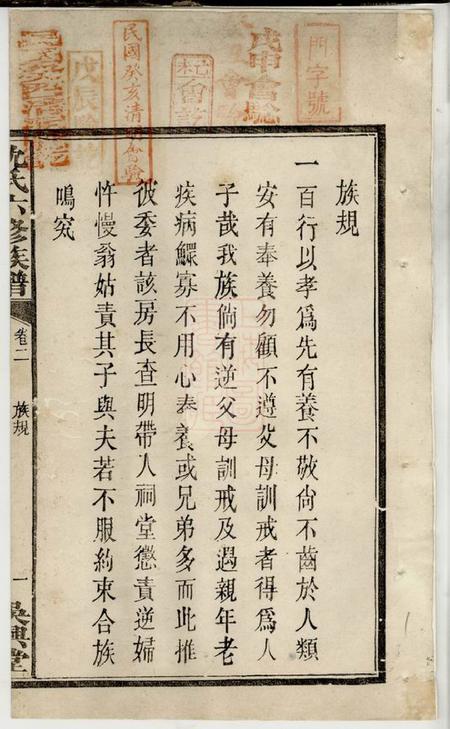 門字號
戊申會譜
民國癸亥清明會譜
族規
一百行以孝爲先有養不敬尙不齒於人類
安有奉養勿顧不遵父母訓戒者得爲人
子哉我族倘有逆父母訓戒及遇親年老
疾病鰥寡不用心奉養或兄弟多而此推
彼委者該房長查明帶人祠堂懲責逆婦
忤慢翁姑責其子與夫若不服約束合族
鳴究
沈氏六修族譜
卷二
族規
一
吳興堂